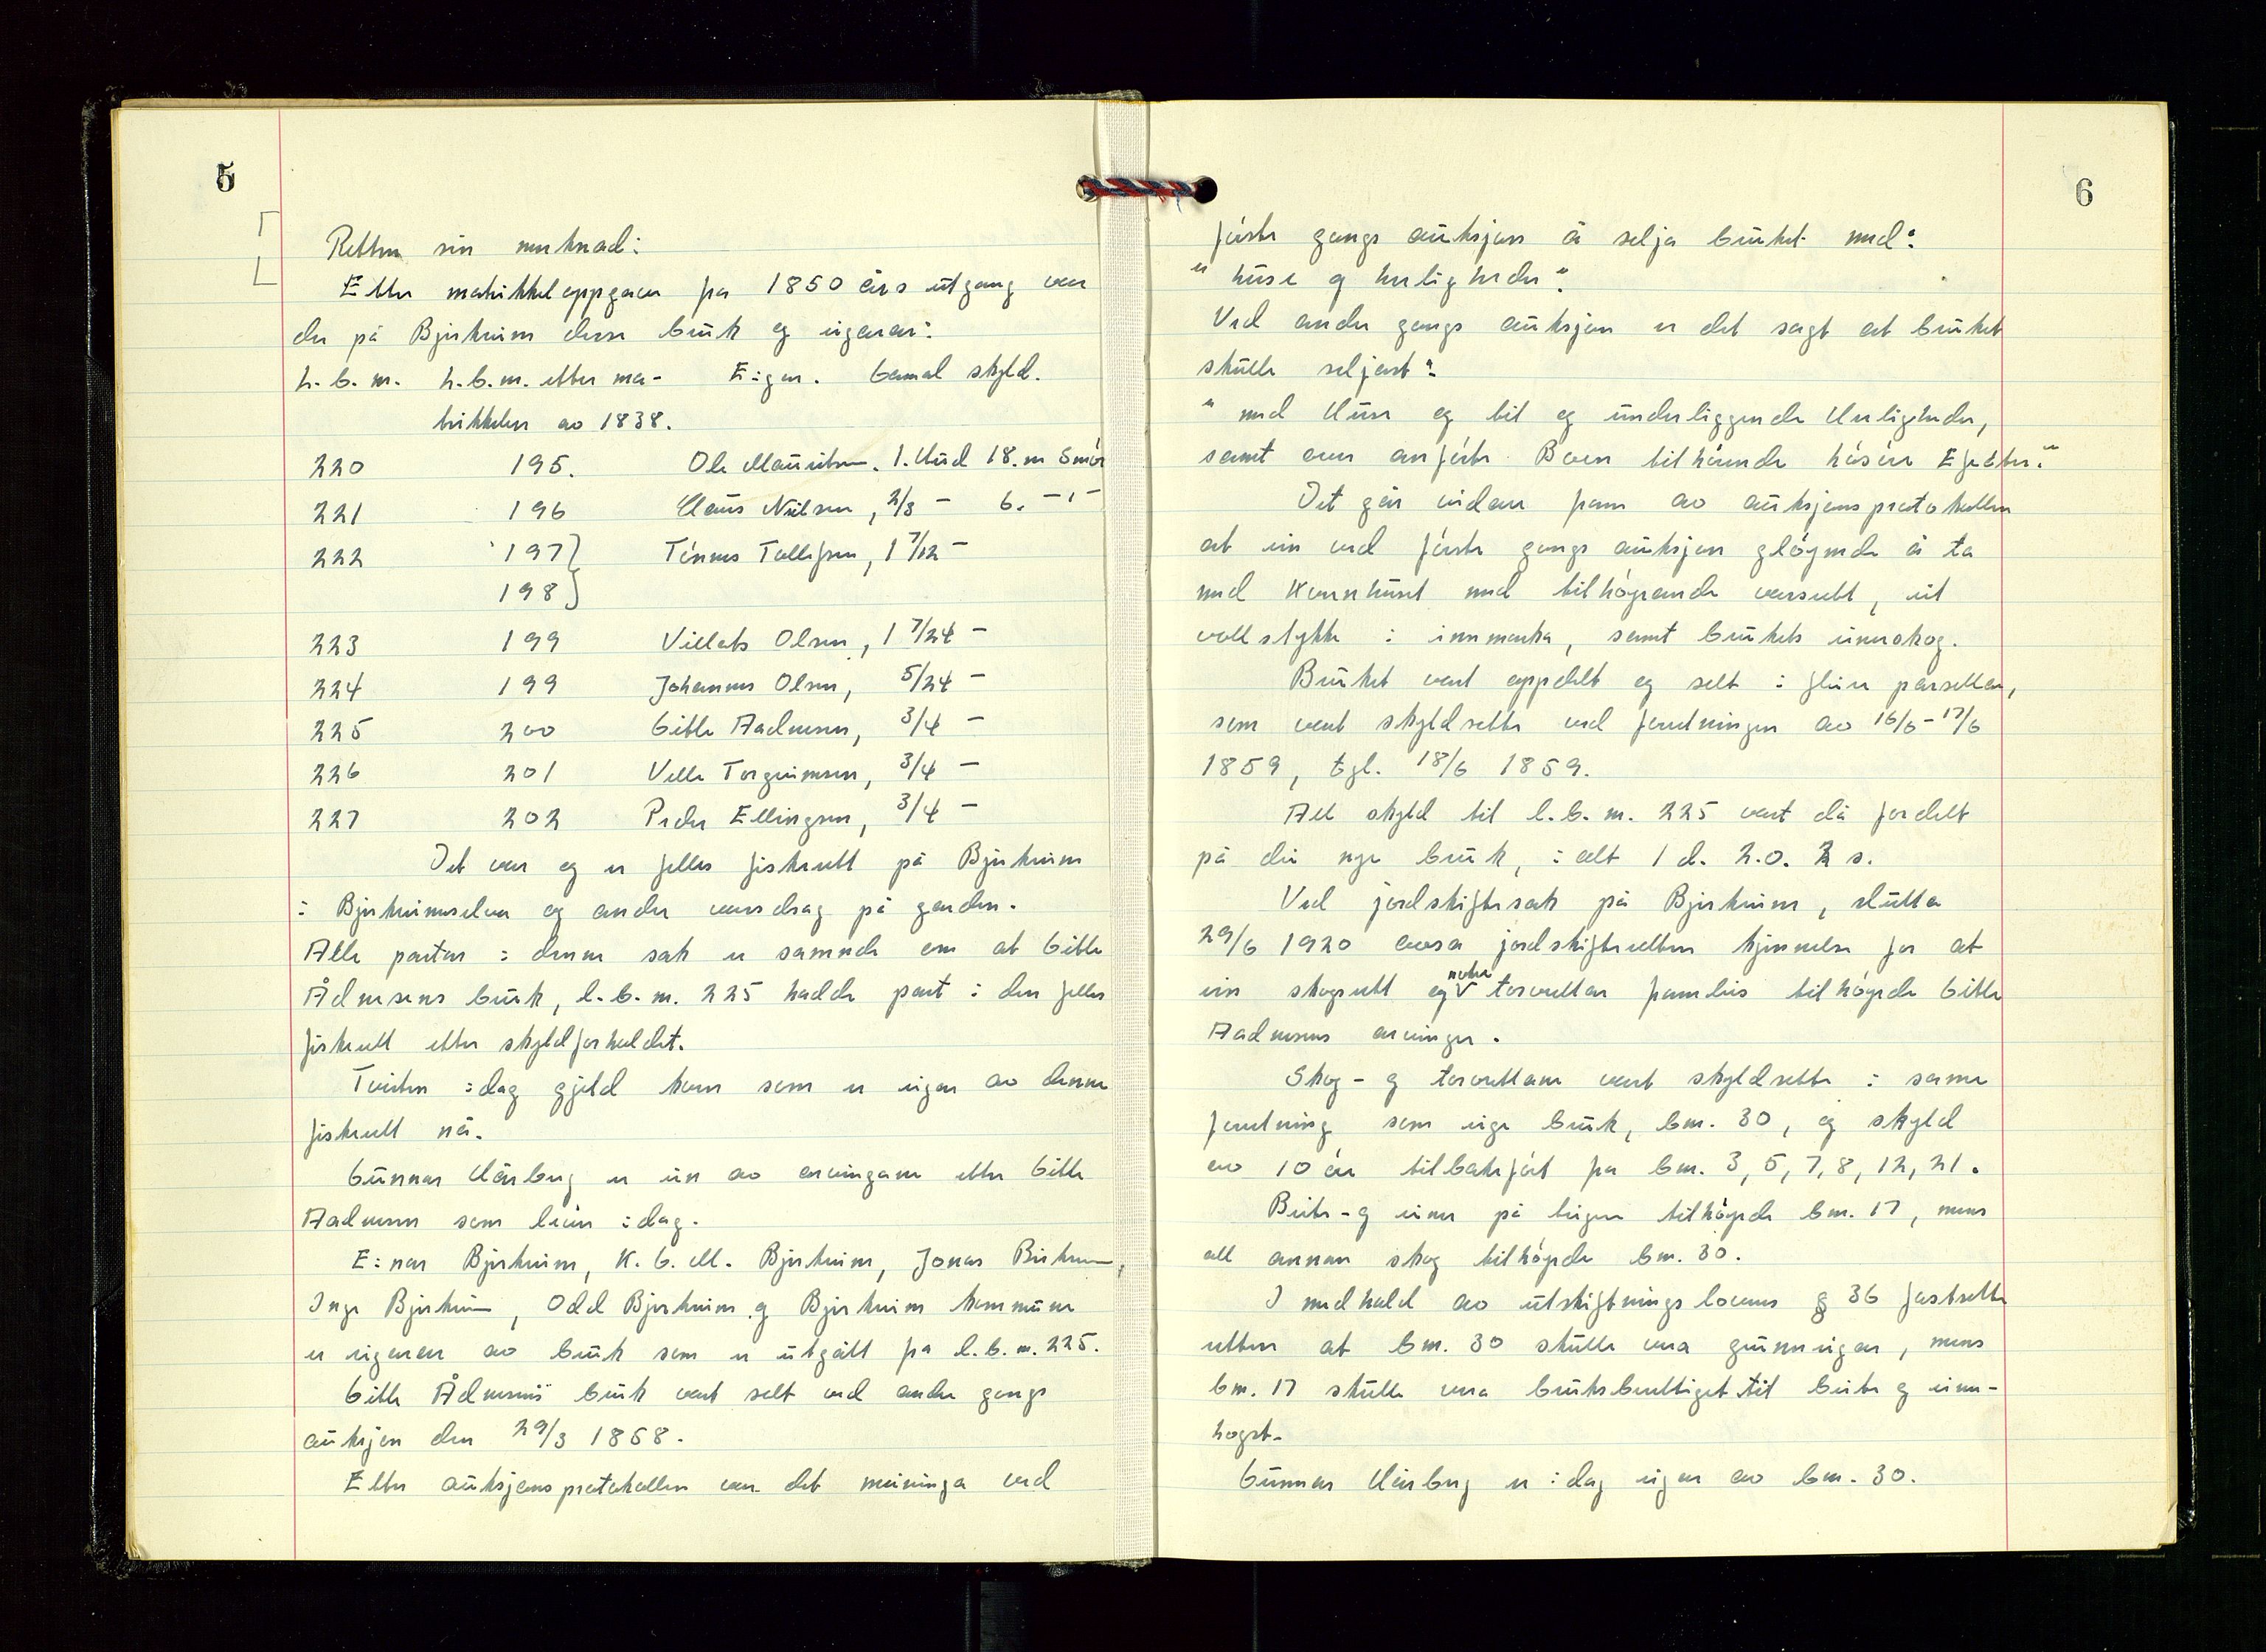 5
Retten sin merknad:
Etter matrikkeloppgaver fra 1850 års utgang var
der på Bjerkreim desse bruk og eigarar:
L.b.nr. L.b.nr. etter ma- Eigar. Gamal skyld.
trikkelen av 1838.
220 195. Ole Mauritsen. 1. Hud 18. m Smör
221 196 Claus Nilsen, 2/3 – 6. – ' –
222 197} Tönnes Tollefsen, 1 7/12 –
198}
223 199 Villats Olsen, 1 7/24 –
224 199 Johannes Olsen, 5/24 –
225 200 Gitle Aadnesen, 3/4 –
226 201 Velle Torgrimsen, 3/4 –
227 202 Peder Ellingsen, 3/4 –
Det var og er felles fiskerett på Bjerkreim
i Bjerkreimselva og andre vassdrag på garden.
Alle partar i denne sak er samnde om at Gitle
Ådnesens bruk, l.b.nr. 225 hadde part i den felles
fiskerett etter skyldforholdet.
Tvisten idag gjeld kven som er eigar av denne
fiskerett nå.
Gunnar Hårberg er ein av arvingane etter Gitle
Aadnesen som lever idag.
Einar Bjerkreim, K.G.M. Bjerkreim, Jonas Birkrem,
Inge Bjerkreim, Odd Bjerkreim og Bjerkreim kommune
er eigarar av bruk som er utgått fra l.b.nr. 225.
Gitle Ådnesens bruk vart selt ved andre gangs
auksjon den 29/3 1858.
Etter auksjonsprotokollen var det meininga ved
6
förste gangs auksjon å selja bruket med:
"huse og herligheder".
Ved andre gangs auksjon er det sagt at bruket
skulle seljast:
"med Huse og til og underliggende Herligheder,
samt som anförte Boen tilhörende lösöre Efekter."
Det går vidare fram av auksjonsprotokollen
at ein ved förste gangs auksjon glöymde å ta
med Kvernhuset med tilhöyrande vassrett, eit
vollstykke i innmarka, samt brukets einerskog.
Bruket vart oppdelt og selt i fleire parsellar,
som vart skyldsette ved forretningen av 16/6–17/6
1859, tgl. 18/6 1859.
All skyld til l.b.nr. 225 vart då fordelt
på dei nye bruk, i alt 1 d. 2.o. 2 s.
Ved jordskiftesak på Bjerkreim, slutta
29/6 1920 avsa jordskifteretten kjennelse for at
ein skogrett og nokre torvrettar framleis tilhöyrde Gitle
Aadnesens arvinger.
Skog- og torvrettane vart skyldsette i same
forretning som eige bruk, bnr. 30, og skyld
av 10 öre tilbakefört fra bnr. 3, 5, 7, 8, 12, 21.
Beite- og einer på teigen tilhöyrde bnr. 17, mens
all annan skog tilhöyrde bnr. 30.
I medhald av utskiftningslovens § 36 fastsette
retten at bnr. 30 skulle vera grunneigar, mens
bnr. 17 skulle vera bruksberettiget til beite og einer-
hogst.
Gunnar Hårberg er idag eigar av bnr. 30.